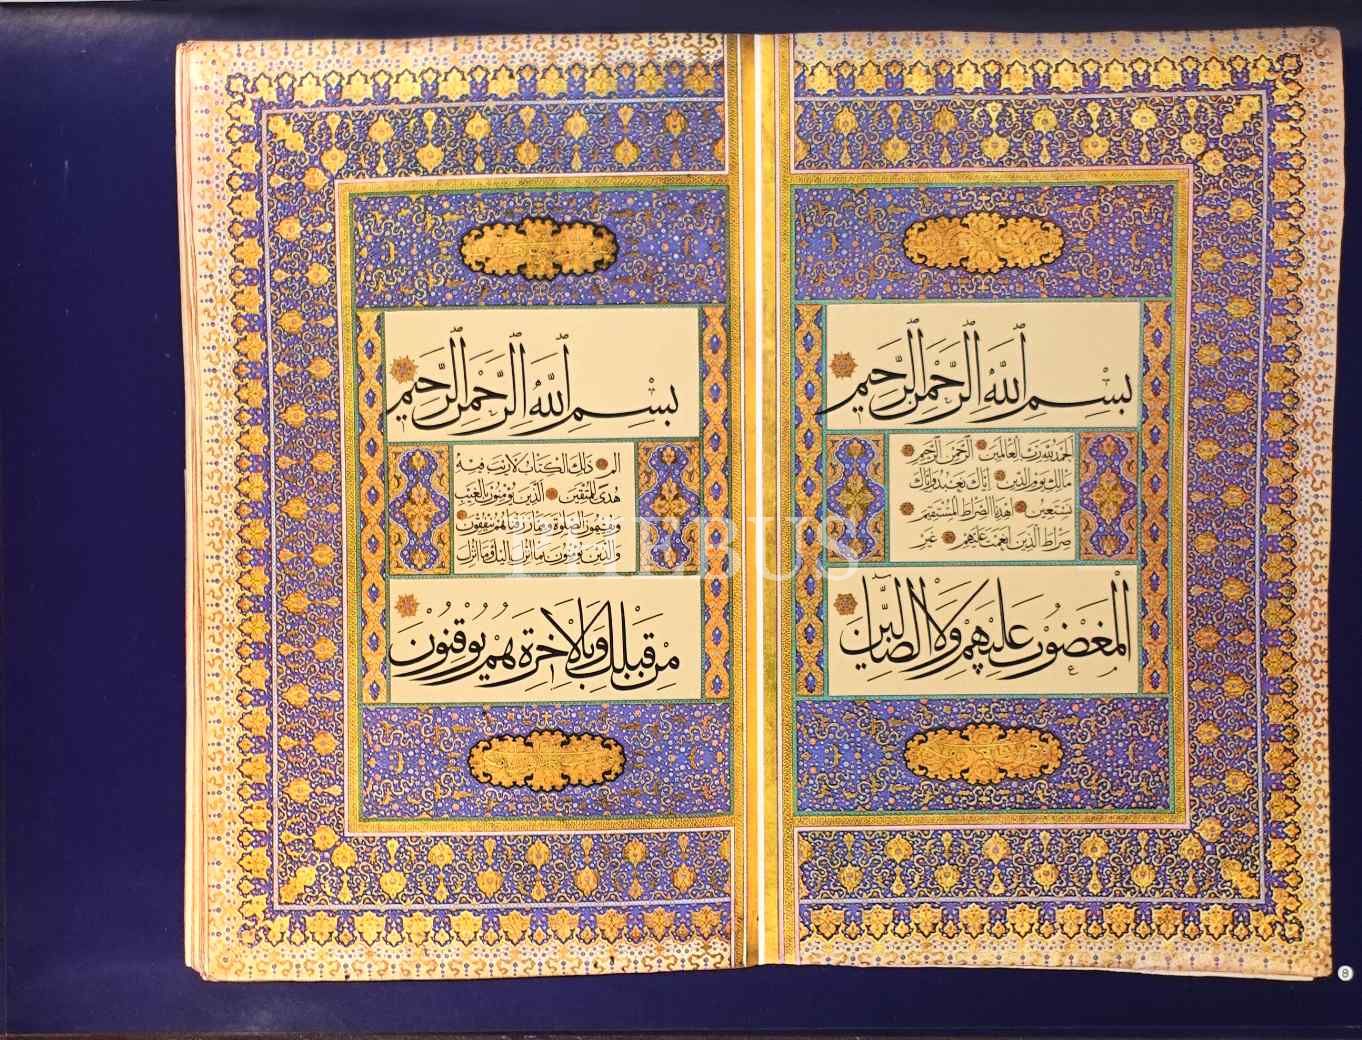 بِسْمِ اللَّهِ الرَّحْمٰنِ الرَّحِيمِ
الحمد لله رب العالمين الرحمن الرحيم
مالك يوم الدين اياك نعبد واياك
نستعين اهدنا الصراط المستقيم
صراط الذين انعمت عليهم غير
المغضوب عليهم ولا الضالين
بِسْمِ اللَّهِ الرَّحْمٰنِ الرَّحِيمِ
الم ذلك الكتاب لا ريب فيه
هدى للمتقين الذين يؤمنون بالغيب
ويقيمون الصلوة ومما رزقناهم ينفقون
والذين يؤمنون بما انزل اليك وما انزل
من قبلك وبالاخرة هم يوقنون
PHEBUS
8